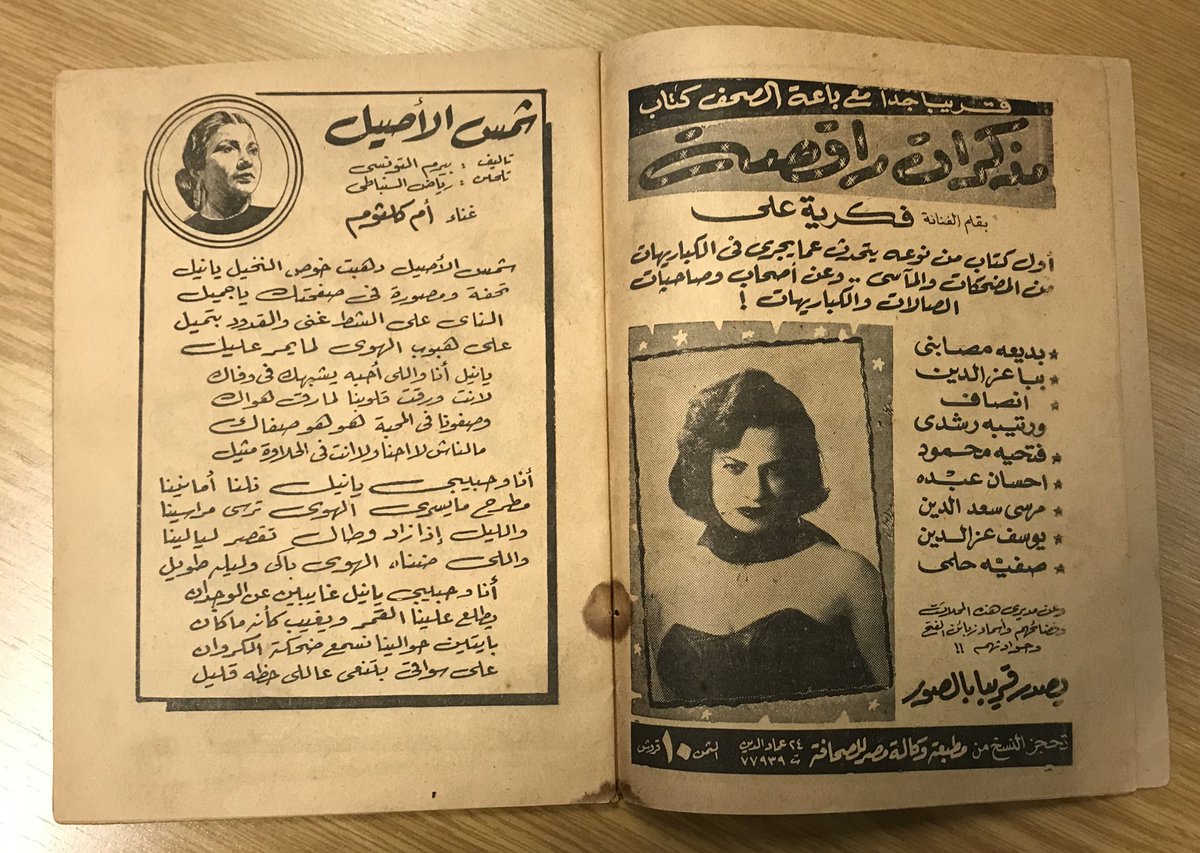 شمس الأصيل
تأليف : بيرم التونسى
تلحين : رياض السنباطى
غناء أم كلثوم
شمس الأصيل دهبت خوص النخيل يانيل
تحفة ومصورة فى صفحتك ياجميل
الناى على الشط غنى والقدود بتميل
على هبوب الهوى لما يمر عليك
يانيل أنا واللى أحبه يشبهك فى وفاك
لانت ورقت قلوبنا لما رق هواك
وصفونا فى المحبة هو هو صفاك
مالناش لا احنا ولا انت فى الحلاوة مثيل
أنا وحبيبى يانيل نلنا أمانينا
مطرح مايسرى الهوى ترسى مراسينا
والليل إذا زاد وطال تقصر ليالينا
واللى ضناه الهوى باكى وليله طويل
أنا وحبيبى يانيل غايبين عن الوجدان
يطلع علينا القمر ويغيب كأنه ماكان
بايتين حوالينا نسمع ضحكة الكروان
على سواقى بتنعى عاللى حظه قليل
قريبا جدا مع باعة الصحف كتاب
مذكرات راقصة
بقلم الفنانة فكرية على
أول كتاب من نوعه يتحدث عما يجرى فى الكباريهات
من المضحكات والمآسى .. وعن أصحاب وصاحبات
الصالات والكباريهات !
★ بديعه مصابنى
★ ببا عز الدين
★ انصاف
ورتيبه رشدى
★ فتحيه محمود
★ احسان عبده
★ مرسى سعد الدين
★ يوسف عز الدين
★ صفيه حلمى
وعن مديرى هذه المحلات
وفضائحهم وأسماء زبائن الفتح
وحوادثهم !!
يصدر قريبا بالصور
تحجز النسخ من مطبعة وكالة مصر للصحافة ٢٤ عماد الدين ت ٧٧٩٣٩ الثمن ١٠ قروش